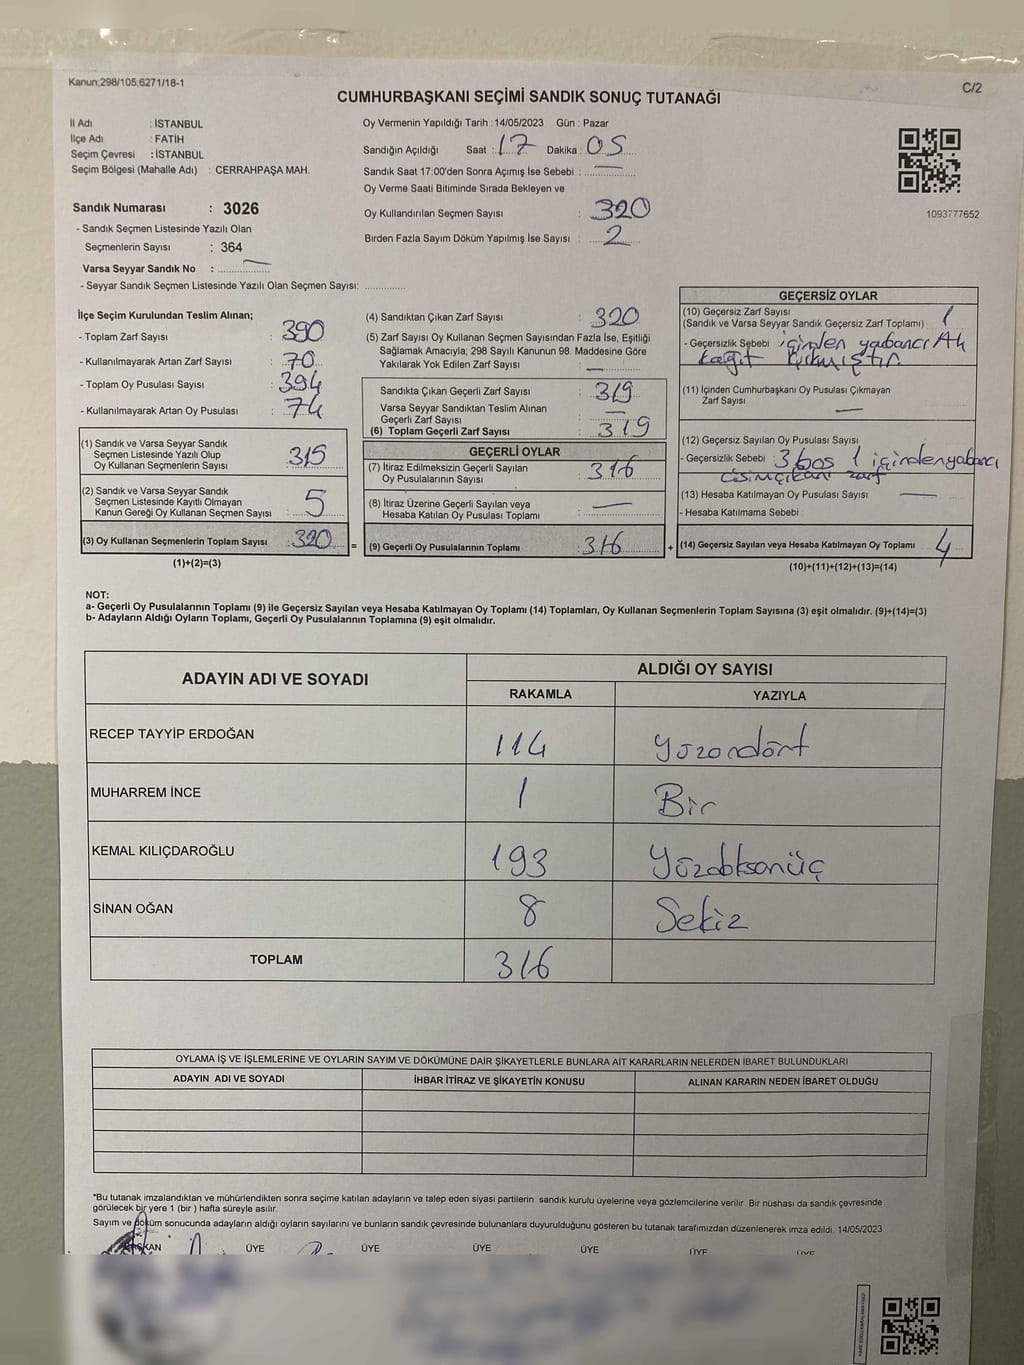 Kanun;298/105;6271/18-1
C/2
CUMHURBAŞKANI SEÇİMİ SANDIK SONUÇ TUTANAĞI
İl Adı : İSTANBUL
İlçe Adı : FATİH
Seçim Çevresi : İSTANBUL
Seçim Bölgesi (Mahalle Adı) : CERRAHPAŞA MAH.
Sandık Numarası : 3026
- Sandık Seçmen Listesinde Yazılı Olan
Seçmenlerin Sayısı : 364
Varsa Seyyar Sandık No : —
- Seyyar Sandık Seçmen Listesinde Yazılı Olan Seçmen Sayısı: ..............
Oy Vermenin Yapıldığı Tarih : 14/05/2023 Gün : Pazar
Sandığın Açıldığı Saat : 17 Dakika : 05
Sandık Saat 17:00'den Sonra Açımış İse Sebebi : —
Oy Verme Saati Bitiminde Sırada Bekleyen ve
Oy Kullandırılan Seçmen Sayısı : 320
Birden Fazla Sayım Döküm Yapılmış İse Sayısı : 2
1093777652
İlçe Seçim Kurulundan Teslim Alınan;
- Toplam Zarf Sayısı : 390
- Kullanılmayarak Artan Zarf Sayısı : 70
- Toplam Oy Pusulası Sayısı : 394
- Kullanılmayarak Artan Oy Pusulası : 74
(1) Sandık ve Varsa Seyyar Sandık
Seçmen Listesinde Yazılı Olup
Oy Kullanan Seçmenlerin Sayısı : 315
(2) Sandık ve Varsa Seyyar Sandık
Seçmen Listesinde Kayıtlı Olmayan
Kanun Gereği Oy Kullanan Seçmen Sayısı : 5
(3) Oy Kullanan Seçmenlerin Toplam Sayısı : 320 =
(1)+(2)=(3)
(4) Sandıktan Çıkan Zarf Sayısı : 320
(5) Zarf Sayısı Oy Kullanan Seçmen Sayısından Fazla İse, Eşitliği
Sağlamak Amacıyla; 298 Sayılı Kanunun 98. Maddesine Göre
Yakılarak Yok Edilen Zarf Sayısı : —
Sandıkta Çıkan Geçerli Zarf Sayısı : 319
Varsa Seyyar Sandıktan Teslim Alınan
Geçerli Zarf Sayısı : —
(6) Toplam Geçerli Zarf Sayısı : 319
GEÇERLİ OYLAR
(7) İtiraz Edilmeksizin Geçerli Sayılan
Oy Pusulalarının Sayısı : 316
(8) İtiraz Üzerine Geçerli Sayılan veya
Hesaba Katılan Oy Pusulası Toplamı : —
(9) Geçerli Oy Pusulalarının Toplamı : 316 +
GEÇERSİZ OYLAR
(10) Geçersiz Zarf Sayısı : 1
(Sandık ve Varsa Seyyar Sandık Geçersiz Zarf Toplamı)
- Geçersizlik Sebebi : içinden yabancı
kağıt
(11) İçinden Cumhurbaşkanı Oy Pusulası Çıkmayan
Zarf Sayısı : —
(12) Geçersiz Sayılan Oy Pusulası Sayısı
- Geçersizlik Sebebi : 3 boş 1 içinden yabancı
cisim çıkan zarf
(13) Hesaba Katılmayan Oy Pusulası Sayısı : —
- Hesaba Katılmama Sebebi
(14) Geçersiz Sayılan veya Hesaba Katılmayan Oy Toplamı : 4
(10)+(11)+(12)+(13)=(14)
NOT:
a- Geçerli Oy Pusulalarının Toplamı (9) ile Geçersiz Sayılan veya Hesaba Katılmayan Oy Toplamı (14) Toplamları, Oy Kullanan Seçmenlerin Toplam Sayısına (3) eşit olmalıdır. (9)+(14)=(3)
b- Adayların Aldığı Oyların Toplamı, Geçerli Oy Pusulalarının Toplamına (9) eşit olmalıdır.
ADAYIN ADI VE SOYADI ALDIĞI OY SAYISI
RAKAMLA YAZIYLA
RECEP TAYYİP ERDOĞAN 114 Yüzondört
MUHARREM İNCE 1 Bir
KEMAL KILIÇDAROĞLU 193 Yüzdoksanüç
SİNAN OĞAN 8 Sekiz
TOPLAM 316
OYLAMA İŞ VE İŞLEMLERİNE VE OYLARIN SAYIM VE DÖKÜMÜNE DAİR ŞİKAYETLERLE BUNLARA AİT KARARLARIN NELERDEN İBARET BULUNDUKLARI
ADAYIN ADI VE SOYADI İHBAR İTİRAZ VE ŞİKAYETİN KONUSU ALINAN KARARIN NEDEN İBARET OLDUĞU
*Bu tutanak imzalandıktan ve mühürlendikten sonra seçime katılan adayların ve talep eden siyasi partilerin sandık kurulu üyelerine veya gözlemcilerine verilir. Bir nüshası da sandık çevresinde
görülecek bir yere 1 (bir ) hafta süreyle asılır.
Sayım ve döküm sonucunda adayların aldığı oyların sayılarını ve bunların sandık çevresinde bulunanlara duyurulduğunu gösteren bu tutanak tarafımızdan düzenlenerek imza edildi. 14/05/2023
BAŞKAN ÜYE ÜYE ÜYE ÜYE ÜYE ÜYE